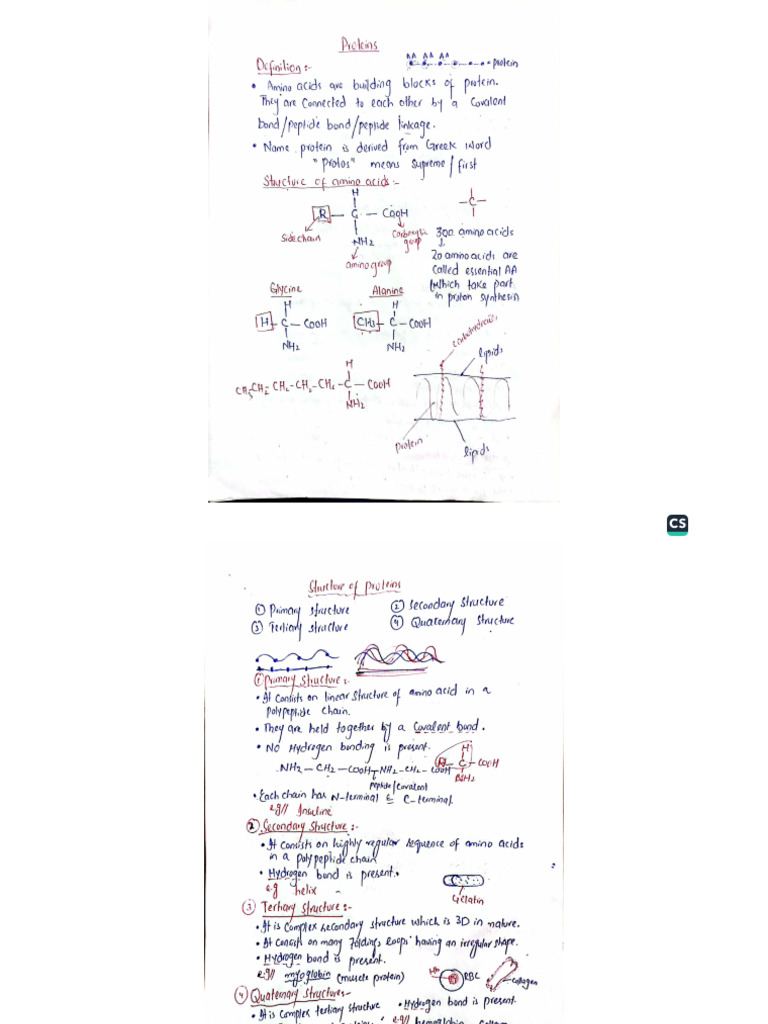 Proteins
AA AA AA
= protein
Definition :-
• Amino acids are building blocks of protein.
They are connected to each other by a Covalent
bond/peptide bond/peptide linkage.
• Name protein is derived from Greek word
"protos" means supreme/first
Structure of amino acids :-
H
R — C — COOH
NH2
Side chain
Carboxylic group
amino group
— C —
300 amino acids
↓
20 amino acids are
called essential AA
(which take part
in protien synthesis
Glycine
H
H — C — COOH
NH2
Alanine
H
CH3 — C — COOH
NH2
H
CH3 CH2 — CH2 — CH2 — CH2 — C — COOH
NH2
carbohydrates
lipids
protein
lipids
CS
Structure of Proteins
① Primary structure
② Secondary structure
③ Tertiary structure
④ Quaternary structure
① Primary structure :-
• It consists on linear structure of amino acid in a
polypeptide chain.
• They are held together by a covalent bond.
• No Hydrogen bonding is present.
NH2 — CH2 — COOH — NH2 — CH2 — COOH
peptide/covalent
H
R — C — COOH
NH2
• Each chain has N-terminal & C-terminal
e.g// Insuline
② Secondary structure :-
• It consists on highly regular sequence of amino acids
in a polypeptide chain
• Hydrogen bond is present.
e.g helix
Gelatin
③ Tertiary structure :-
• It is complex secondary structure which is 3D in nature.
• It consist on many foldings loops having an irregular shape.
• Hydrogen bond is present.
e.g// myoglobin (muscle protein)
RBC
collagen
④ Quaternary structure :-
• It is complex tertiary structure
• Hydrogen bond is present
e.g// hemoglobin